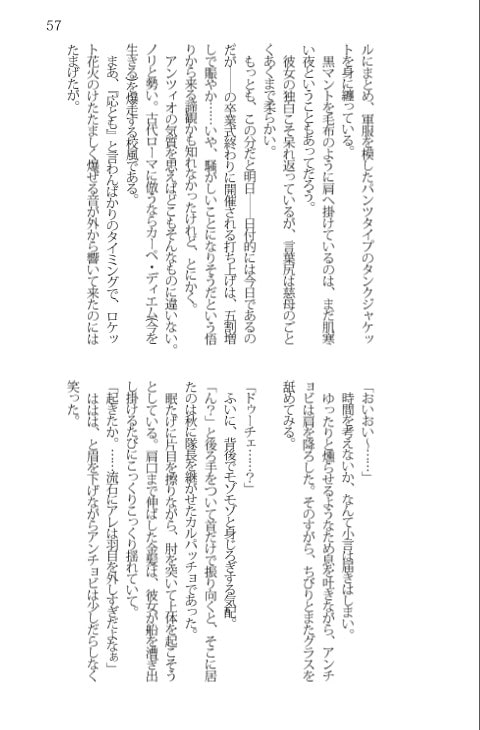 57
ルにまとめ、軍服を模したパンツタイプのタンクジャケッ
トを身に纏っている。
黒マントを毛布のように肩へ掛けているのは、まだ肌寒
い夜ということもあってだろう。
彼女の独白こそ呆れ返っているが、言葉尻は慈母のごと
くあくまで柔らかい。
もっとも、この分だと明日――日付的には今日であるの
だが――の卒業式終わりに開催される打ち上げは、五割増
しで賑やか……いや、騒がしいことになりそうだという悟
りから来る諦観かも知れなかったけれど、とにかく。
アンツィオの気質を思えばどこもそんなものに違いない。
ノリと勢い。古代ローマに倣うならカーペ・ディエム(今を
生きる)を爆走する校風である。
まあ、『応とも』と言わんばかりのタイミングで、ロケッ
ト花火のけたたましく爆ぜる音が外から響いて来たのには
たまげたが。
「おいおい〜……」
時間を考えないか、なんて小言は届きはしまい。
ゆったりと燻らせるようなため息を吐きながら、アンチ
ョビは肩を降ろした。そのすがら、ちびりとまたグラスを
舐めてみる。
「ドゥーチェ……?」
ふいに、背後でモゾモゾと身じろぎする気配。
「ん?」と後ろ手をついて首だけで振り向くと、そこに居
たのは秋に隊長を継がせたカルパッチョであった。
眠たげに片目を擦りながら、肘を突いて上体を起こそう
としている。肩口まで伸ばした金髪は、彼女が船を漕ぎ出
し掛けるたびにこっくりこっくり揺れていて。
「起きたか。……流石にアレは羽目を外しすぎだよなぁ」
ははは、と眉を下げながらアンチョビは少しだらしなく
笑った。